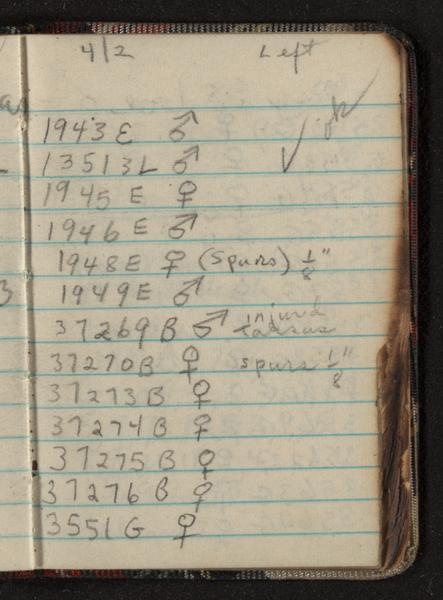 4/2 Left
ok
1943 E ♂
13513 L ♂ ✓
1945 E ♀
1946 E ♂
1948 E ♀ (spurs) 1/8"
1949 E ♂
37269 B ♂ injurd tarsus
37270 B ♀ spurs 1/8"
37273 B ♀
37274 B ♀
37275 B ♀
37276 B ♀
3551 G ♀